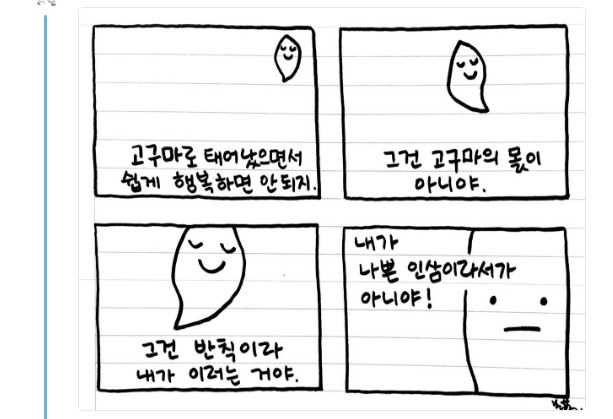 고구마로 태어났으면서
쉽게 행복하면 안되지.
그건 고구마의 몫이
아니야.
그건 반칙이라
내가 이러는 거야.
내가
나쁜 인삼이라서가
아니야!